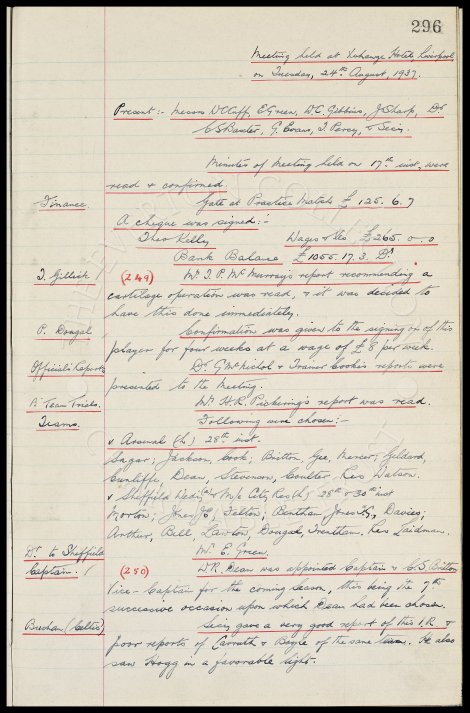 296
Meeting held at Exchange Hotel, Liverpool,
on Tuesday, 24th August, 1937.
Present :- Messrs W.C. Cuff, E. Green, W.C. Gibbins, J. Sharp, Drs
C.S. Baxter, G. Evans, T. Percy, & Secy.
Minutes of Meeting held on 17th inst. were
read & confirmed.
Finance. Gate at Practice Match £125. 6. 7
A cheque was signed :-
Theo Kelly Wages &c £265. 0. 0
Bank Balance £1055. 17. 3. Dr.
T. Gillick (249) Mr T. P. McMurray's report recommending a
cartilage operation was read, & it was decided to
have this done immediately.
P. Dougal Confirmation was given to the signing on of this
player for four weeks at a wage of £8 per week.
Officials' Reports G. McNichol & Trainer Cooke's reports were
presented to the Meeting.
'A' Team Trials. Mr H. R. Pickering's report was read.
Teams. Following were chosen :-
v Arsenal (h) 28th inst.
Sagar; Jackson, Cook; Britton, Gee, Mercer; Geldard,
Cunliffe, Dean, Stevenson, Coulter, Res Watson.
v Sheffield Wedy (a) & M/c City Res (h), 28th & 30th inst
Morton; Jones JE, Felton; Bentham, Jones TG, Davies;
Arthur, Bell, Lawton, Dougal, Trentham, Res Laidman.
Dr. to Sheffield Mr. E. Green.
Captain. (250) W.R. Dean was appointed Captain & C.S. Britton
Vice-Captain for the coming season, this being the 7th
successive occasion upon which Dean had been chosen.
Buchan (Celtic) Secy gave a very good report of this I.R. &
poor reports of & Boyle of the same team. He also
saw Hogg in a favorable light.